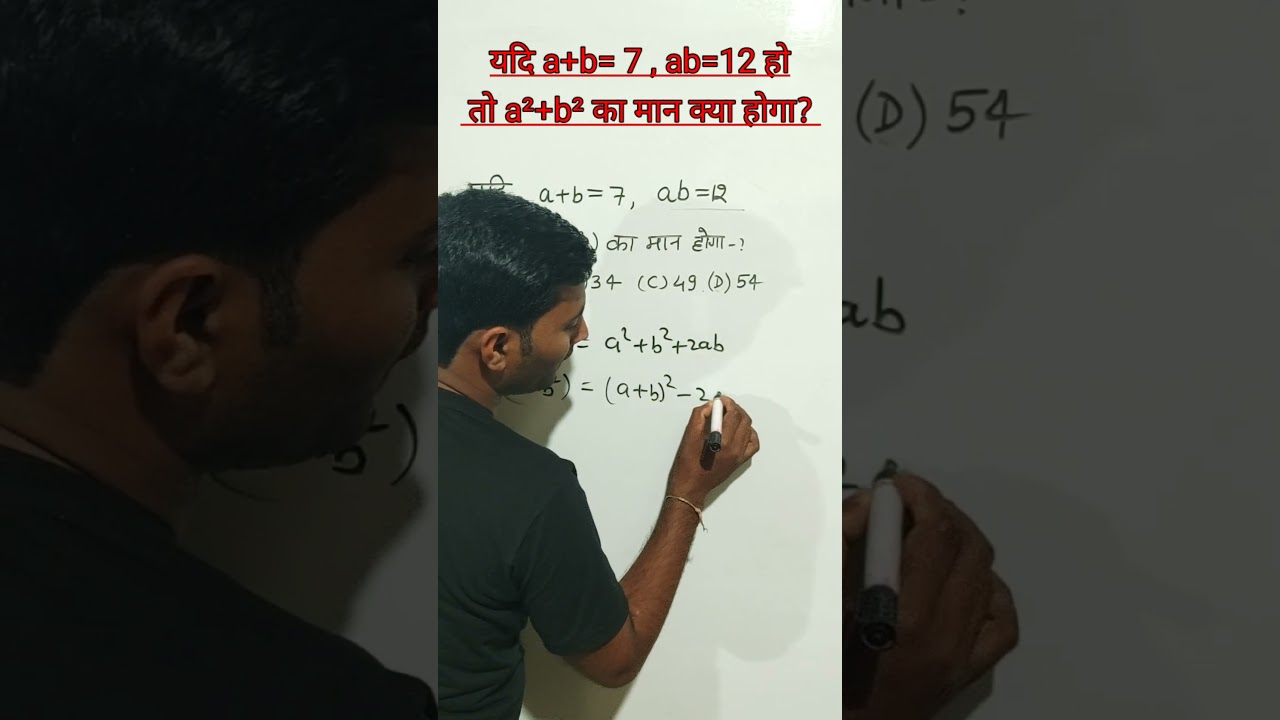 यदि a+b= 7 , ab=12 हो
तो a²+b² का मान क्या होगा?
a+b=7, ab=12
) का मान होगा-?
34 (C) 49 (D) 54
= a²+b²+2ab
b²) = (a+b)²-2
(D) 54
ab
b²)